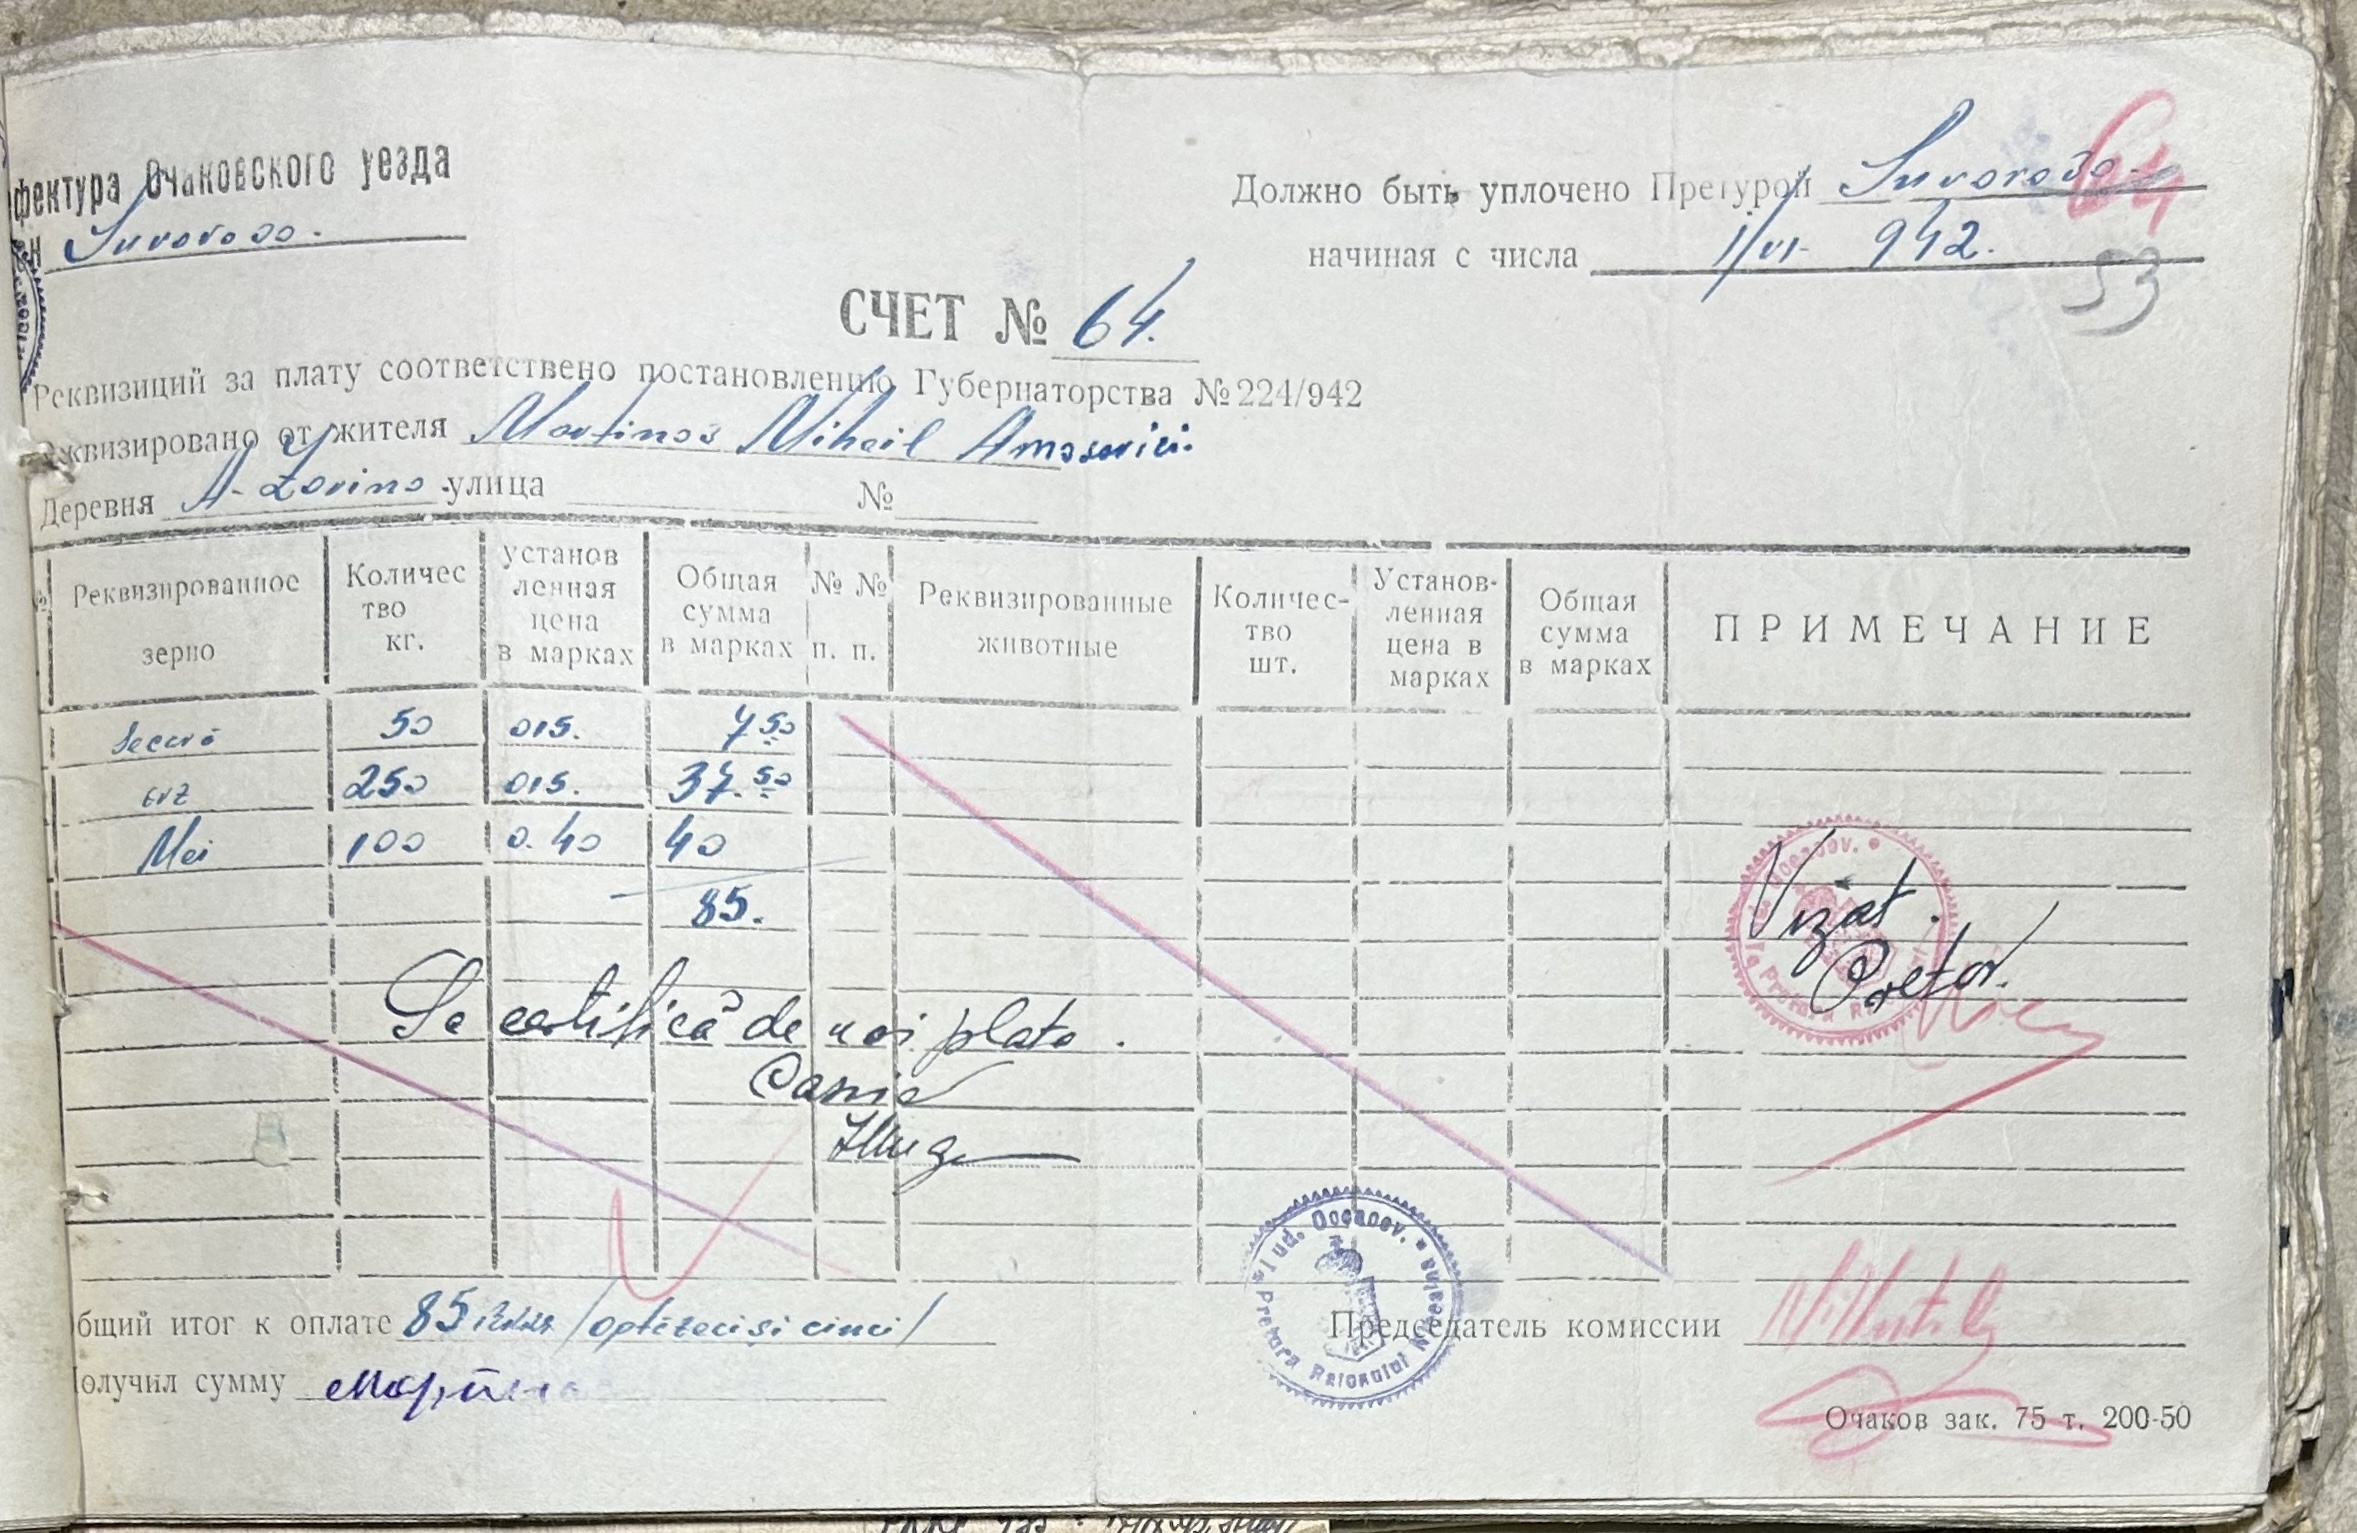 фектура Очаковского уезда
Н Suvorovo.
Должно быть уплочено Претурой Suvorovo
начиная с числа 1/VI- 942.
64
53
СЧЕТ № 64.
Реквизиций за плату соответствено постановлению Губернаторства № 224/942
квизировано от жителя Martinov Mihail Amosovici.
Деревня улица №
Реквизированное зерно
Количес тво кг.
установ ленная цена в марках
Общая сумма в марках
№ № п. п.
Реквизированные животные
Количес- тво шт.
Установ- ленная цена в марках
Общая сумма в марках
ПРИМЕЧАНИЕ
Secară 50 015. 7 50
orz 250 015. 37. 50
Mei 100 0.40 40
85.
Se certifică de noi plata.
Casier
Vizat.
Pretor.
Jud. Oceacov.
Pretura Raionului
бщий итог к оплате 85 /optzeci și cinci/
Председатель комиссии
олучил сумму Мартинов
Jud. Oceacov. Pretura Raionului
Очаков зак. 75 т. 200-50